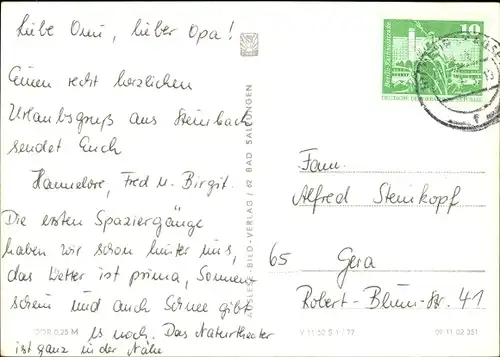 Liebe Omi, lieber Opa!
Einen recht herzlichen
Urlaubsgruß aus Steinbach
sendet Euch
Hannelore, Fred u. Birgit.
Die ersten Spaziergänge
haben wir schon hinter uns,
das Wetter ist prima, Sonnen-
schein und auch Schnee gibt
es noch. Das Naturtheater
ist ganz in der Nähe
DDR 0,25 M
AUSLESE-BILD-VERLAG / 62 BAD SALZUNGEN
10
Berlin, Rathausstraße
DEUTSCHE DEMOKRATISCHE REPUBLIK
Fam.
Alfred Steinkopf
65 Gera
Robert-Blum-Str. 41
V 11 50 S 1 / 77
09 11 02 351